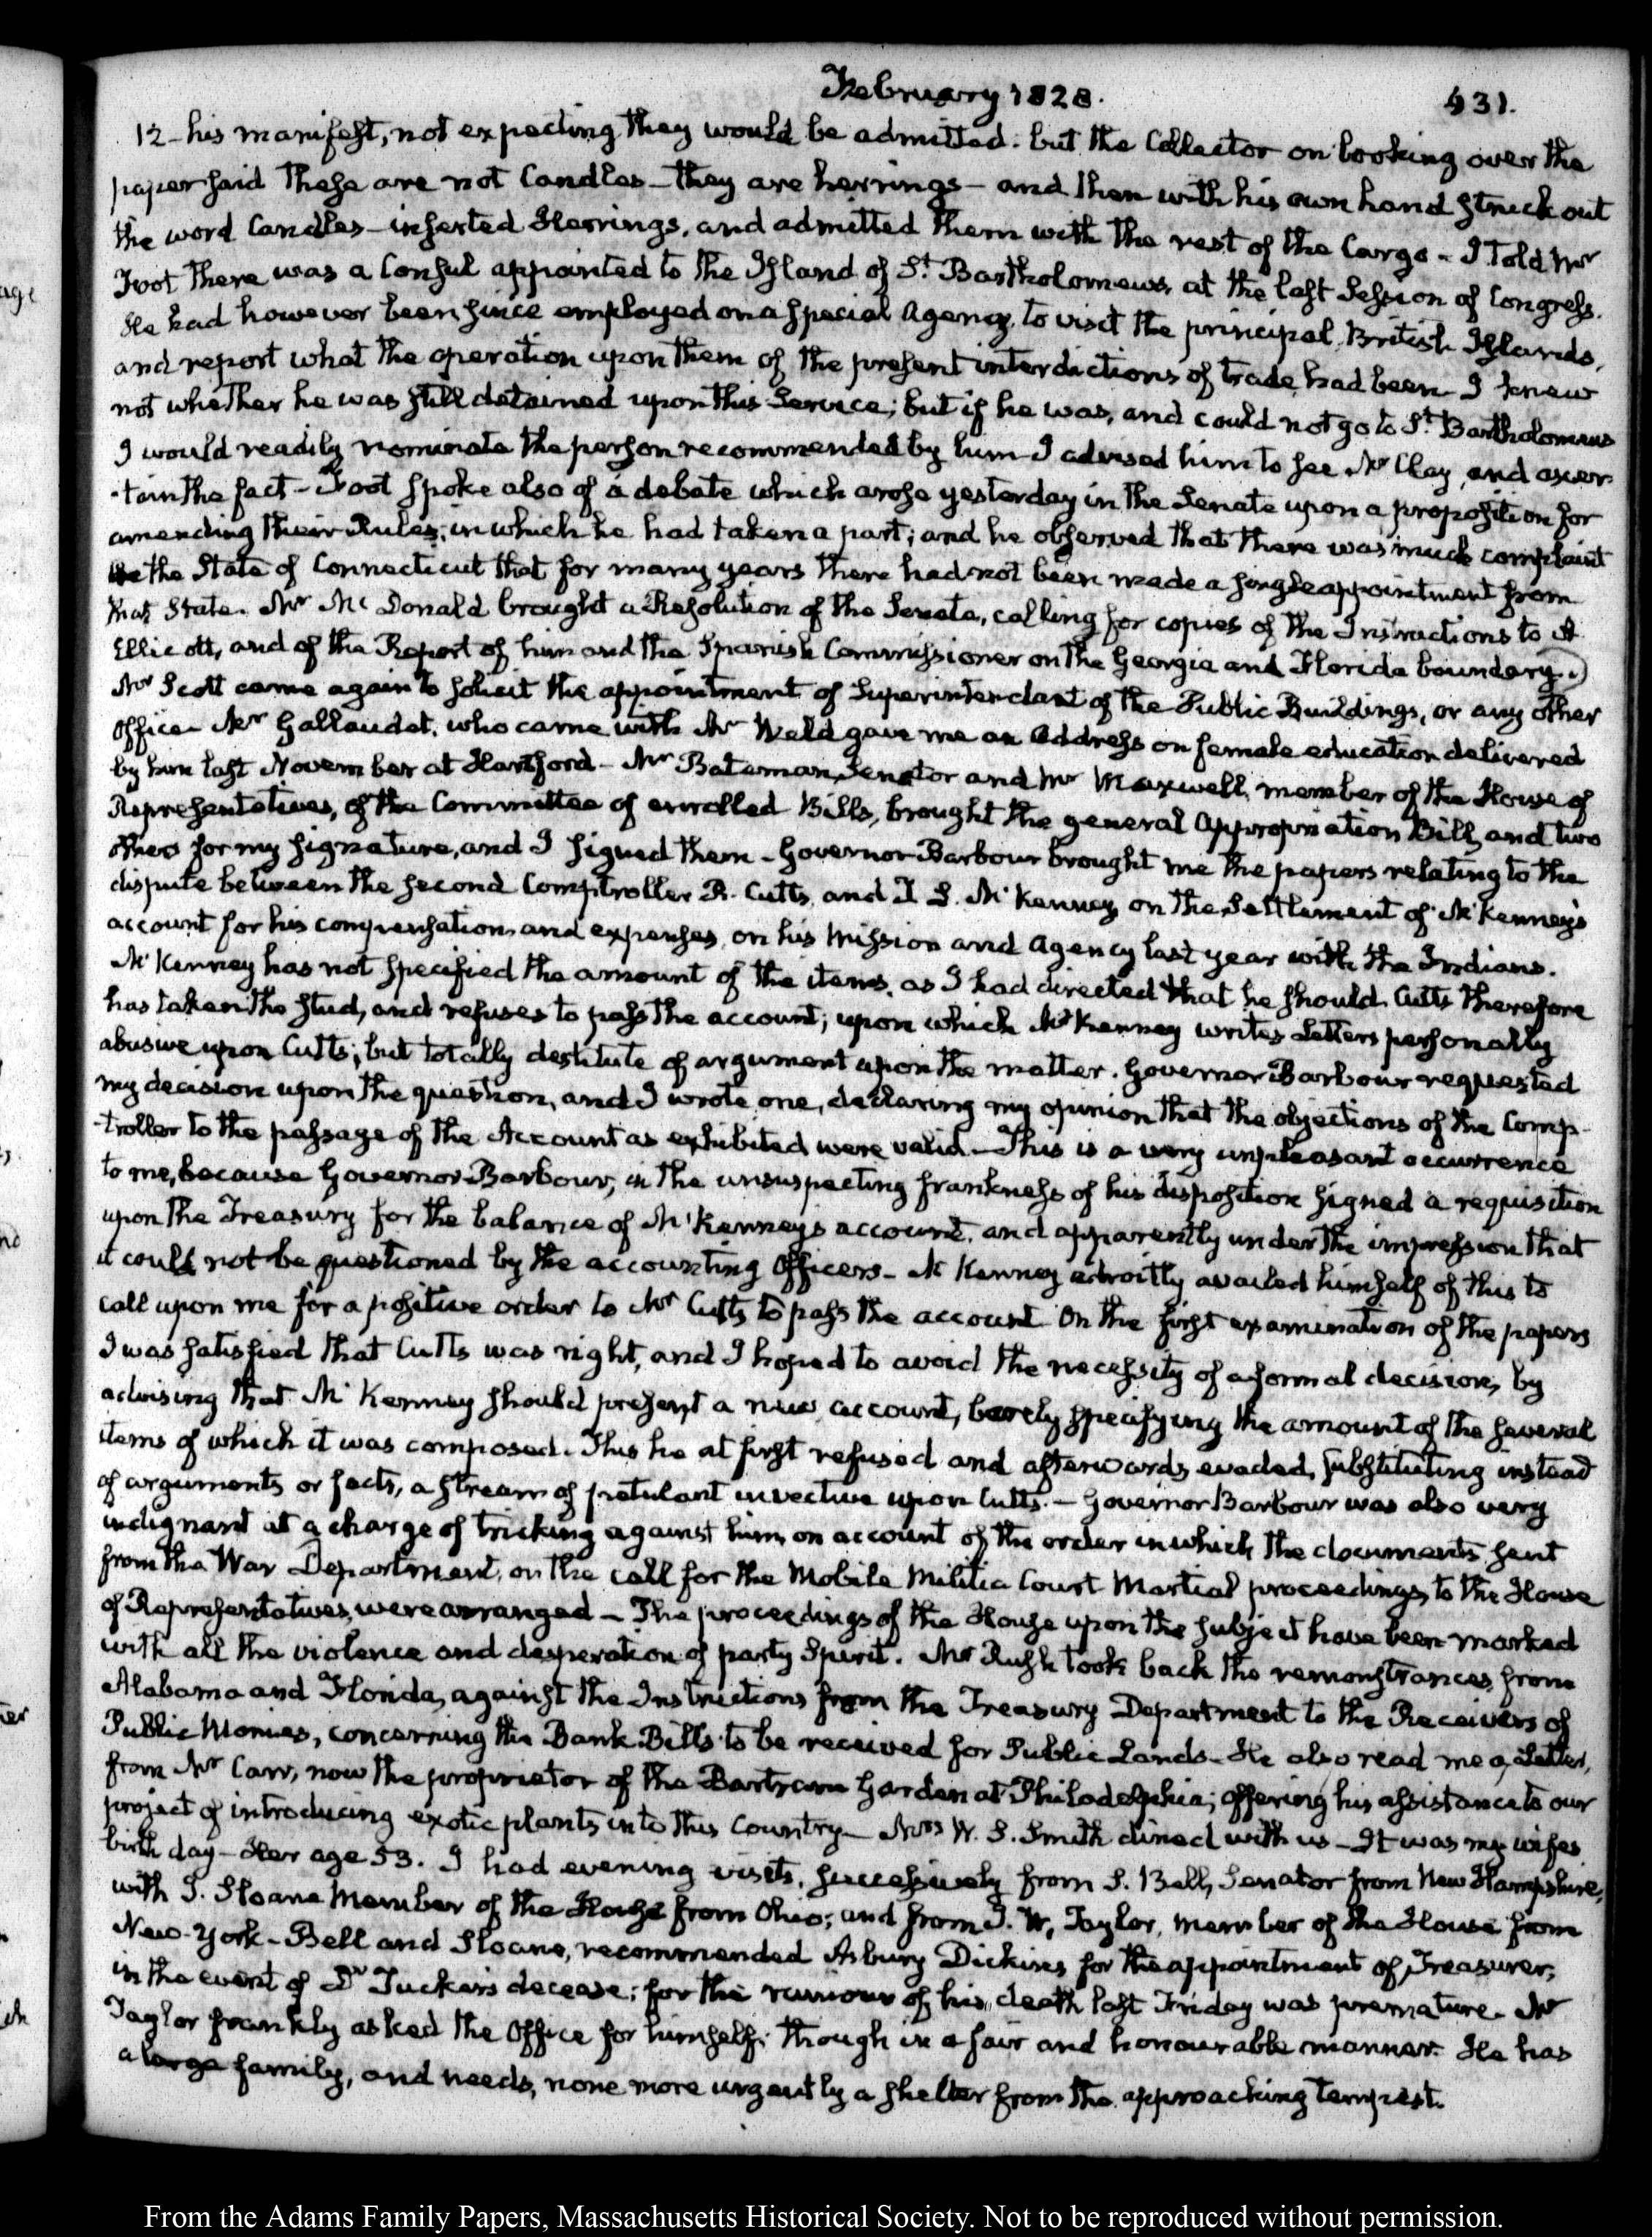 February 1828.
431.
12 - his manifest, not expecting they would be admitted: but the Collector on looking over the
paper said These are not Candles - they are herrings - and then with his own hand struck out
the word Candles - inserted Herrings, and admitted them with the rest of the Cargo - I told Mr
Foot there was a Consul appointed to the Island of St. Bartholomews, at the last Session of Congress.
He had however been since employed on a special Agency, to visit the principal British Islands,
and report what the operation upon them of the present interdictions of trade, had been - I knew
not whether he was still detained upon this Service; but if he was, and could not go to St. Bartholomews
I would readily nominate the person recommended by him - I advised him to see Mr Clay, and ascer-
-tain the fact - Foot spoke also of a debate which arose yesterday in the Senate upon a proposition for
amending their Rules; in which he had taken a part; and he observed that there was much complaint
the State of Connecticut that for many years there had not been made a single appointment from
that State. Mr McDonald brought a Resolution of the Senate, calling for copies of the Instructions to A
Ellicott, and of the Report of him and the Spanish Commissioner on the Georgia and Florida boundary.)
Mr Scott came again to solicit the appointment of Superintendant of the Public Buildings, or any other
Office - Mr Gallaudet, who came with Mr Weld gave me an Address on female education delivered
by him last November at Hartford - Mr Bateman, Senator and Mr Maxwell, member of the House of
Representatives, of the Committee of enrolled Bills, brought the general Appropriation Bill, and two
others for my signature, and I signed them - Governor Barbour brought me the papers relating to the
dispute between the second Comptroller R. Cutts, and T. L. McKenney on the settlement of McKenney's
account for his compensation and expenses, on his Mission and Agency last year with the Indians.
McKenney has not specified the amount of the items, as I had directed that he should. Cutts therefore
has taken the stud, and refuses to pass the account; upon which McKenney writes Letters personally
abusive upon Cutts; but totally destitute of argument upon the matter. Governor Barbour requested
my decision upon the question, and I wrote one, declaring my opinion that the objections of the Comp-
-troller to the passage of the Account as exhibited were valid - This is a very unpleasant occurrence
to me, because Governor Barbour, in the unsuspecting frankness of his disposition signed a requisition
upon the Treasury for the balance of McKenney's account, and apparently under the impression that
it could not be questioned by the accounting Officers - McKenney adroitly availed himself of this to
call upon me for a positive order to Mr Cutts to pass the account. On the first examination of the papers
I was satisfied that Cutts was right, and I hoped to avoid the necessity of a formal decision, by
advising that McKenney should present a new account, barely specifying the amount of the several
items of which it was composed. This he at first refused and afterwards evaded, substituting instead
of arguments or facts, a stream of petulant invective upon Cutts. - Governor Barbour was also very
indignant at a charge of tricking against him, on account of the order in which the documents sent
from the War Department, on the call for the Mobile Militia Court Martial proceedings, to the House
of Representatives, were arranged - The proceedings of the House upon the subject have been marked
with all the violence and desperation of party Spirit. Mr Rush took back the remonstrances from
Alabama and Florida, against the Instructions from the Treasury Department to the Receivers of
Public Monies, concerning the Bank Bills to be received for Public Lands - He also read me a Letter,
from Mr Carr, now the proprietor of the Bartram Garden at Philadelphia; offering his assistance to our
project of introducing exotic plants into this Country - Mrs W. S. Smith dined with us - It was my wifes
birth day - Her age 53. I had evening visits, successively from S. Bell, Senator from New Hampshire,
with J. Sloane Member of the House from Ohio; and from J. W. Taylor, member of the House from
New-York - Bell and Sloane, recommended Asbury Dickins for the appointment of Treasurer,
in the event of Dr Tucker's decease; for the rumour of his death last Friday was premature. Mr
Taylor frankly asked the Office for himself; though in a fair and honourable manner. He has
a large family, and needs, none more urgently a shelter from the approaching tempest.
From the Adams Family Papers, Massachusetts Historical Society. Not to be reproduced without permission.